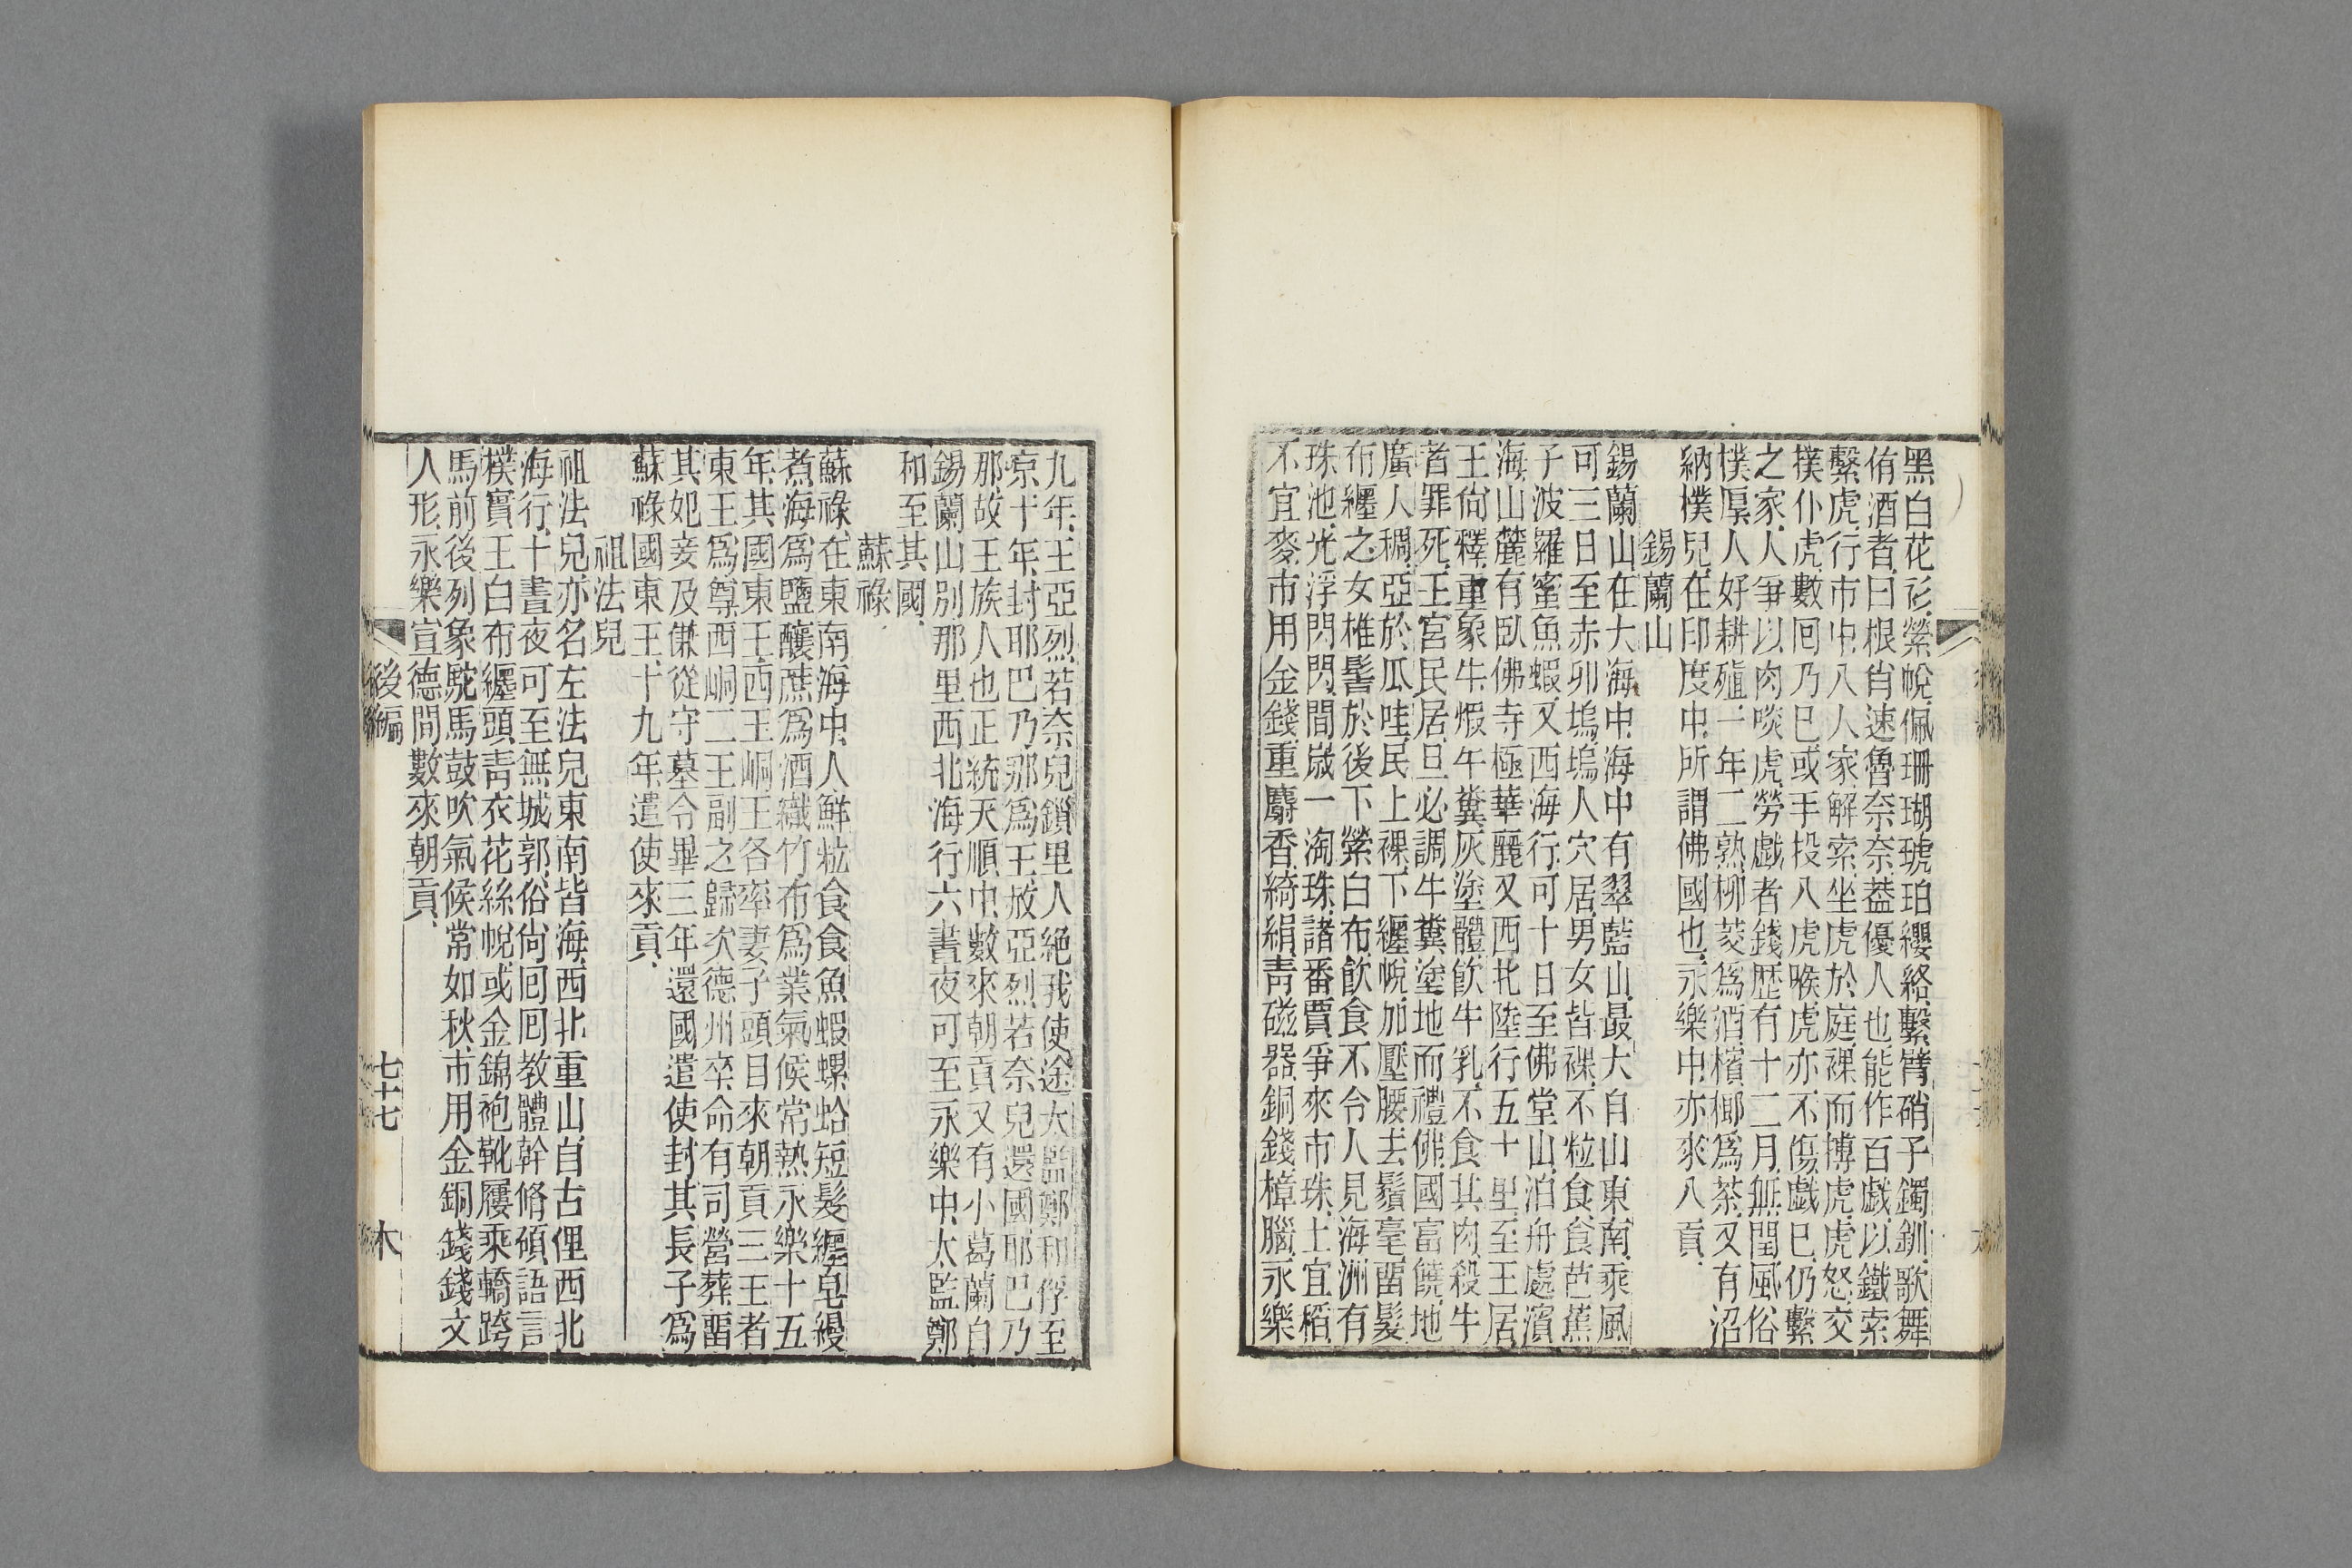 黑白花衫縈帨佩珊瑚琥珀纓絡繫臂硝子鐲釧歌舞
侑酒者曰根肖速魯奈奈葢優人也能作百戲以鐵索
繫虎行市中入人家解索坐虎於庭裸而搏虎虎怒交
撲仆虎數囘乃巳或手投入虎喉虎亦不傷戲巳仍繫
之家人爭以肉啖虎勞戲者錢歴有十二月無閏風俗
樸厚人好耕殖一年二熟柳茭爲酒檳榔爲茶又有沼
納樸兒在印度中所謂佛國也永樂中亦來入貢
錫蘭山
錫蘭山在大海中海中有翠藍山最大自山東南乘風
可三日至赤卯塢塢人穴居男女皆裸不粒食食芭蕉
子波羅蜜魚蝦又西海行可十日至佛堂山泊舟處濱
海山麓有臥佛寺極華麗又西北陸行五十里至王居
王尙釋重象牛煆牛糞灰塗體飮牛乳不食其肉殺牛
者罪死王宮民居旦必調牛糞塗地而禮佛國富饒地
廣人稠亞於瓜哇民上裸下纏帨加壓腰去鬚毫畱髮
布纏之女椎髻於後下縈白布飮食不令人見海洲有
珠池光浮閃閃間歲一淘珠諸番賈爭來市珠土宜稻
不宜麥市用金錢重麝香綺絹靑磁器銅錢樟腦永樂
九年王亞烈若奈兒鎖里人絕我使途太監鄭和俘至
京十年封耶巴乃那爲王赦亞烈若奈兒還國耶巴乃
那故王族人也正統天順中數來朝貢又有小葛蘭自
錫蘭山別那里西北海行六晝夜可至永樂中太監鄭
和至其國
蘇祿
蘇祿在東南海中人鮮粒食食魚蝦螺蛤短髮纏皂縵
煮海爲鹽釀蔗爲酒織竹布爲業氣候常熱永樂十五
年其國東王西王峒王各率妻子頭目來朝貢三王者
東王爲尊西峒二王副之歸次德州卒命有司營葬畱
其妃妾及傔從守墓令畢三年還國遣使封其長子爲
蘇祿國東王十九年遣使來貢
祖法兒
祖法兒亦名左法兒東南皆海西北重山自古俚西北
海行十晝夜可至無城郭俗尙囘囘教體幹脩碩語言
樸實王白布纏頭靑衣花絲帨或金錦袍靴屨乘轎跨
馬前後列象駝馬鼓吹氣候常如秋市用金銅錢錢文
人形永樂宣德間數來朝貢
後編
七十七
木